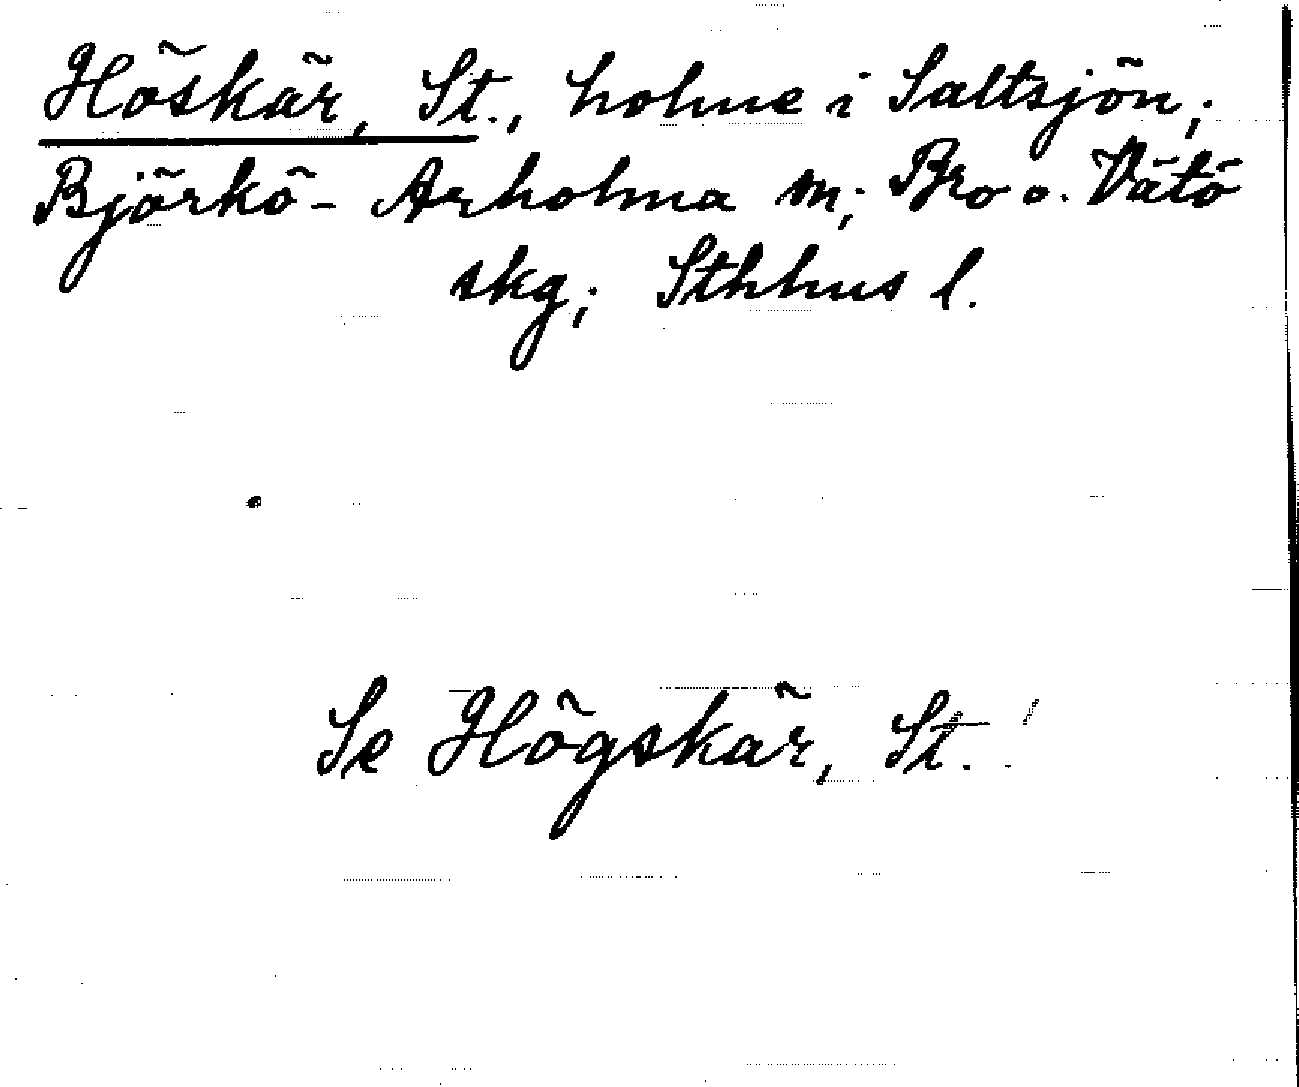 Höskär, St., holme i Saltsjön;
Björkö-Arholma sn; Bro o. Vätö
skg; Sthlms l.
Se Högskär, St.